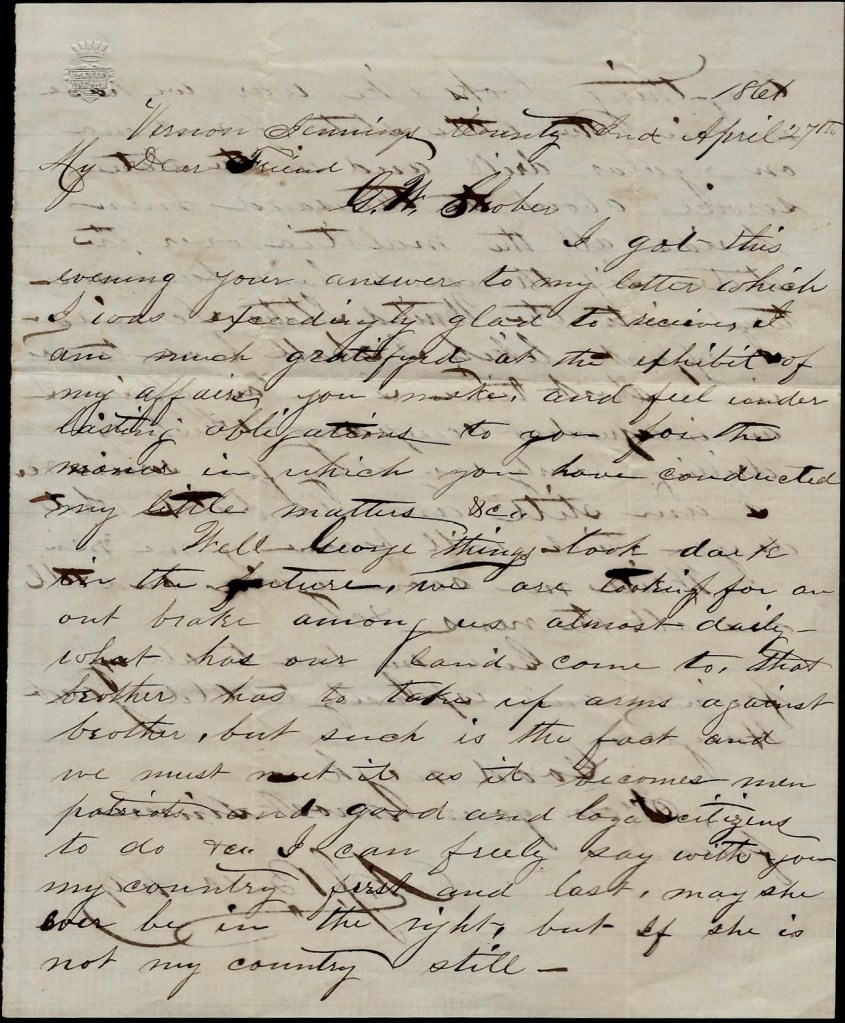 1861
Vernon Jennings County Ind April 27th
My Dear Friend
G. W. Shober
I got this
evening your answer to my letter which
I was exceedingly glad to reciever I
am much gratifyed at the exhibit of
my affairs you make, and feel under
lasting obligations to you for the
manor in which you have conducted
my little matters &ca
Well George things look dark
in the future, we are looking for an
out brake among us almost daily—
what has our land come to, that
brother has to take up arms against
brother, but such is the fact and
we must meet it as it becomes men
patriots and good and loyal citizens
to do &ca I can freely say with you
my country first and last, may she
ever be in the right, but if she is
not my country still —